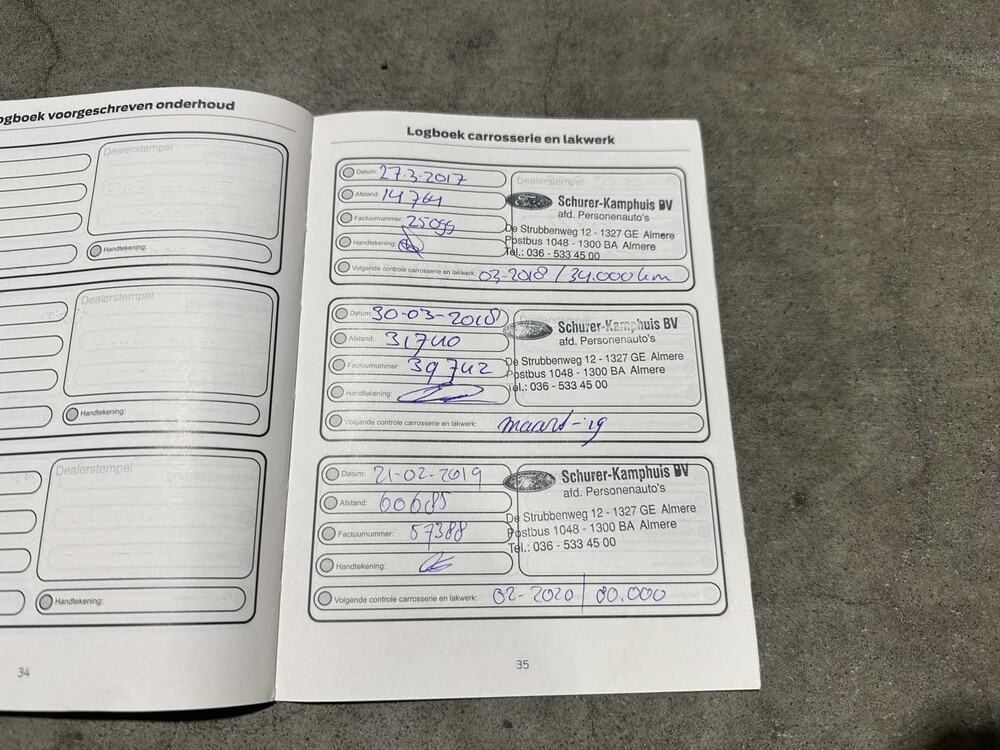 ogboek voorgeschreven onderhoud
Dealerstempel
Handtekening:
Dealerstempel
Handtekening:
Dealerstempel
Handtekening:
34
Logboek carrosserie en lakwerk
Datum: 27-3-2017
Afstand: 14764
Factuurnummer:
Handtekening:
Dealerstempel
Schurer-Kamphuis BV
afd. Personenauto's
De Strubbenweg 12 - 1327 GE Almere
Postbus 1048 - 1300 BA Almere
Tel.: 036 - 533 45 00
Volgende controle carrosserie en lakwerk: 03-2018 / 34.000 km
Datum: 30-03-2018
Afstand: 31740
Factuurnummer: 39742
Handtekening:
Dealerstempel
Schurer-Kamphuis BV
afd. Personenauto's
De Strubbenweg 12 - 1327 GE Almere
Postbus 1048 - 1300 BA Almere
Tel.: 036 - 533 45 00
Volgende controle carrosserie en lakwerk: maart-19
Datum: 21-02-2019
Afstand: 60685
Factuurnummer: 57388
Handtekening:
Schurer-Kamphuis BV
afd. Personenauto's
De Strubbenweg 12 - 1327 GE Almere
Postbus 1048 - 1300 BA Almere
Tel.: 036 - 533 45 00
Volgende controle carrosserie en lakwerk: 02-2020 / 80.000
35